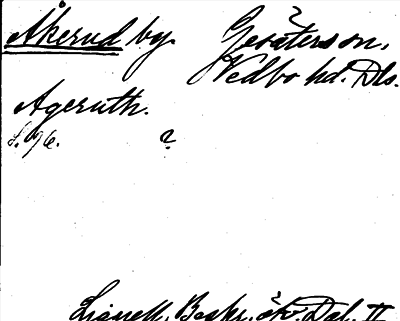 Åkerud by. Gesäterson,
Vedbo hd. Dls.
Ageruth.
s. 96. ?
Lignell, Beskr. öfv. Dal. II